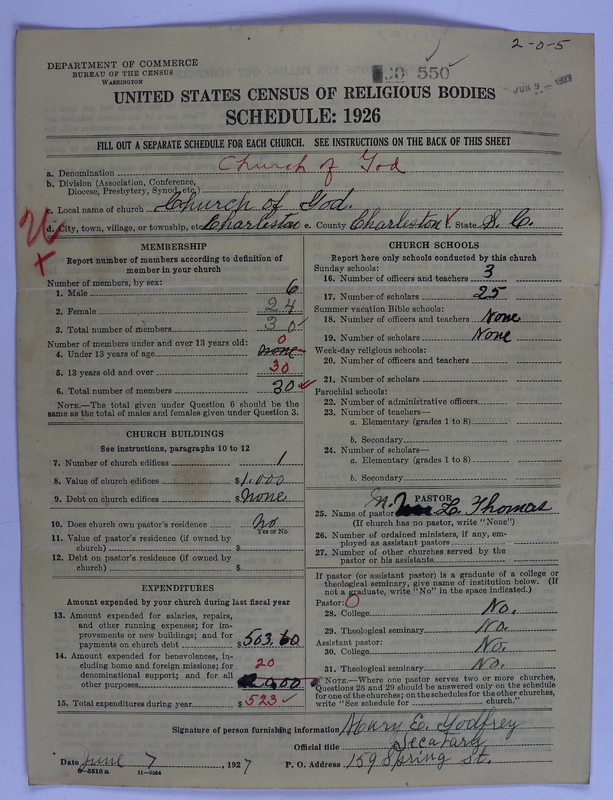 2-0-5
DEPARTMENT OF COMMERCE
BUREAU OF THE CENSUS
WASHINGTON
550
JUN 9 - 1927
UNITED STATES CENSUS OF RELIGIOUS BODIES
SCHEDULE: 1926
FILL OUT A SEPARATE SCHEDULE FOR EACH CHURCH. SEE INSTRUCTIONS ON THE BACK OF THIS SHEET
a. Denomination Church of God
b. Division (Association, Conference,
Diocese, Presbytery, Synod, etc.)
c. Local name of church Church of God.
d. City, town, village, or township, etc. Charleston e. County Charleston f. State S. C.
MEMBERSHIP
Report number of members according to definition of
member in your church
Number of members, by sex:
1. Male 6
2. Female 24
3. Total number of members 30
Number of members under and over 13 years old: 0
4. Under 13 years of age none
5. 13 years old and over 30
6. Total number of members 30
NOTE.—The total given under Question 6 should be
same as the total of males and females given under Question 3.
CHURCH BUILDINGS
See instructions, paragraphs 10 to 12
7. Number of church edifices 1
8. Value of church edifices $1,000
9. Debt on church edifices $none
10. Does church own pastor's residence no
Yes or No
11. Value of pastor's residence (if owned by
church) $
12. Debt on pastor's residence (if owned by
church) $
EXPENDITURES
Amount expended by your church during last fiscal year
13. Amount expended for salaries, repairs,
and other running expenses; for im-
provements or new buildings; and for
payments on church debt $503.60
14. Amount expended for benevolences, in-
cluding home and foreign missions; for 20
denominational support; and for all
other purposes
15. Total expenditures during year $523
CHURCH SCHOOLS
Report here only schools conducted by this church
Sunday schools:
16. Number of officers and teachers 3
17. Number of scholars 25
Summer vacation Bible schools:
18. Number of officers and teachers None
19. Number of scholars None
Week-day religious schools:
20. Number of officers and teachers
21. Number of scholars
Parochial schools:
22. Number of administrative officers
23. Number of teachers—
a. Elementary (grades 1 to 8)
b. Secondary
24. Number of scholars—
a. Elementary (grades 1 to 8)
b. Secondary
PASTOR
25. Name of pastor L. Thomas
(If church has no pastor, write "None")
26. Number of ordained ministers, if any, em-
ployed as assistant pastors
27. Number of other churches served by the
pastor or his assistants
If pastor (or assistant pastor) is a graduate of a college or
theological seminary, give name of institution below. (If
not a graduate, write "No" in the space indicated.)
Pastor:
28. College No.
29. Theological seminary No.
Assistant pastor:
30. College No.
31. Theological seminary No.
NOTE.—Where one pastor serves two or more churches,
Questions 28 and 29 should be answered only on the schedule
for one of the churches; on the schedules for the other churches,
write "See schedule for church."
Signature of person furnishing information Mary E. Godfrey
Official title Secatary
Date June 7, 1927 P. O. Address 159 Spring St.
8-5518 a 11-9054